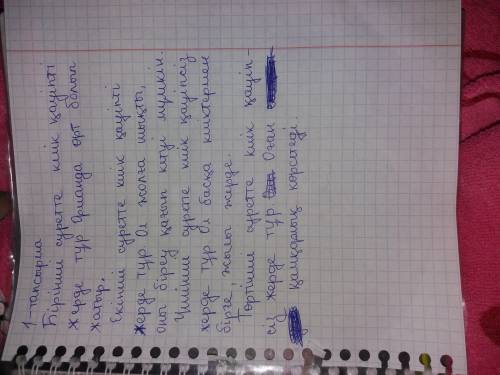 1-тапсырма
Бірінші суретте киік қауіпті
жерде тұр Орманда өрт болып
жатыр.
Екінші суретте киік қауіпті
жерде тұр Ол жолға шықты,
оны біреу қағып кетуі мүмкін.
Үшінші суретте киік қауіпсіз
жерде тұр Ол басқа киіктермен
бірге, жылы жерде.
Төртінші суретте киік қауіп-
сіз жерде тұр Оған
қамқорлық көрсетеді.